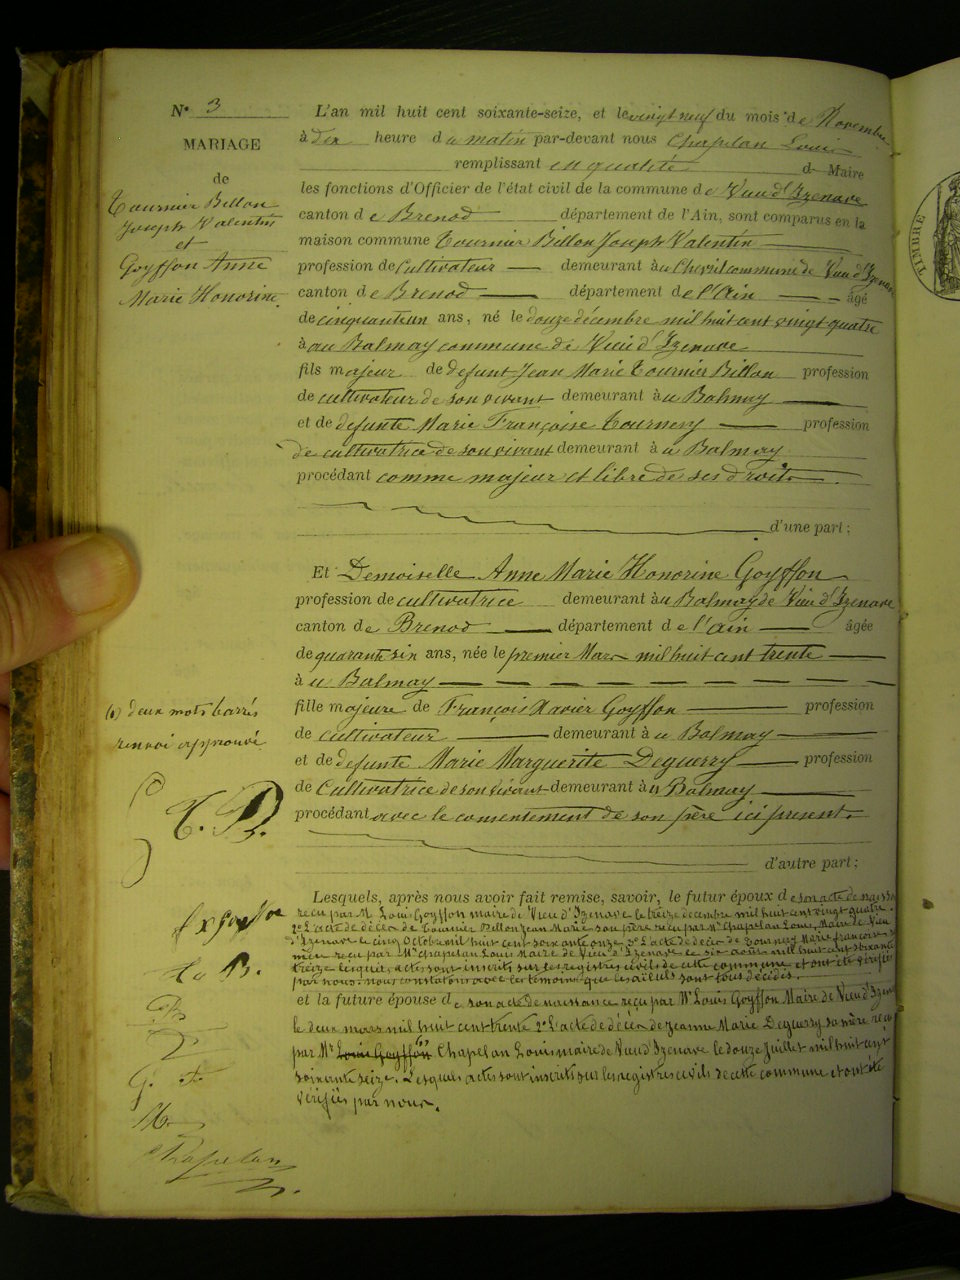 N° 3
MARIAGE
de
Tournier Billon
Joseph Valentin
et
Goyffon Anne
Marie Honorine.
L'an mil huit cent soixante-seize, et le vingt neuf du mois de Novembre
à dix heure du matin par-devant nous Chapelan Louis
remplissant en qualité de Maire
les fonctions d'Officier de l'état civil de la commune de Vieu d'Izenave
canton de Brenod département de l'Ain, sont comparus en la
maison commune Tournier Billon Joseph Valentin
profession de Cultivateur demeurant à commune de Vieu d'Izenave
canton de Brenod département de l'Ain âgé
de cinquante un ans, né le douze décembre mil huit cent vingt quatre
à au Balmay commune de Vieu d'Izenave
fils majeur de defunt Jean Marie Tournier Billon profession
de cultivateur de son vivant demeurant à u Balmay
et de defunte Marie Françoise Tournery profession
de cultivatrice de son vivant demeurant à u Balmay
procédant comme majeur et libre de ses droits.
d'une part;
Et Demoiselle Anne Marie Honorine Goyffon
profession de cultivatrice demeurant à u Balmay de Vieu d'Izenave
canton de Brenod département de l'Ain âgée
de quarante six ans, née le premier Mars mil huit cent trente
à u Balmay
fille majeure de François Xavier Goyffon profession
de cultivateur demeurant à u Balmay
et de defunte Marie Marguerite Deguerry profession
de Cultivatrice de son vivant demeurant à u Balmay
procédant avec le consentement de son père ici présent.
d'autre part;
(1) deux mots barrés
renvoi approuvé
T. B.
Lesquels, après nous avoir fait remise, savoir, le futur époux de son acte de naissance
reçu par M. Louis Goyffon maire de Vieu d'Izenave le treize decembre mil huit cent vingt quatre.
2° L'acte de décès de Tournier Billon Jean Marie son père reçu par Mr Chapelan Louis Maire de Vieu
d'Izenave le cinq Octobre mil huit cent soixante onze 3° L'acte de décès de Tournery Marie françoise sa
mère reçu par Mr Chapelan Louis Maire de Vieu d'Izenave le six août mil huit cent soixante
treize lesquels actes sont inscrits sur les registres civils de cette commune et ont été vérifiés
par nous. nous constatons avec les témoins que les aïeuls sont tous décédés.
et la future épouse de son acte de naissance reçu par Mr Louis Goyffon Maire de Vieu d'Izenave
le deux mars mil huit cent trente 2° L'acte de décès de Jeanne Marie Deguerry sa mère reçu
par Mr Louis Goyffon (1) Chapelan Louis maire de Vieu d'Izenave le douze Juillet mil huit cent
soixante seize. Lesquels actes sont inscrits sur les registres civils de cette commune et ont été
vérifiés par nous.
G. F.
Chapelan
TIMBRE